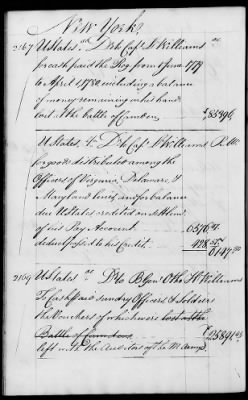 New York
2167 U States Dr to Capt. Williams
for cash paid the Regt. from 1 June 1779
to April 1780 including a balance
of money remaining in his hand
lost at the battle of Camden
U States, to Dr to Capt. Williams P.M.
for goods distributed among the
Officers of Virginia, Delaware &
Maryland lines and for balance
due U States credited on settlemt.
of his Pay Account.
deduct passed to his Credit.
2169 U States Dr to B. Genl. Otho H. Williams
To Cash paid sundry Officers & Soldiers
the Vouchers of which were lost at the
Battle of Camden
left with the Auditors of the M army